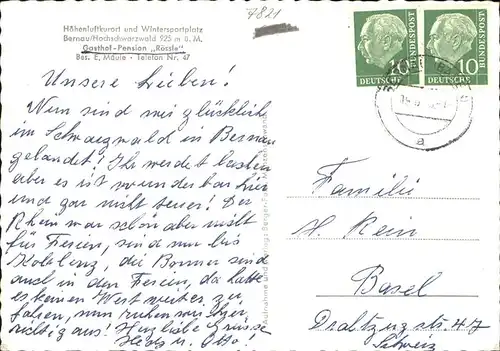 7821
Höhenluftkurort und Wintersportplatz
Bernau/Hochschwarzwald 925 m ü. M.
Gasthof-Pension „Rössle"
Bes. E. Mäule - Telefon Nr. 47
10 10
DEUTSCHE BUNDESPOST
DEUTSCHE BUNDESPOST
a
Unsere Lieben!
Nun sind wir glücklich
im Schwarzwald in Bernau
gelandet! Ihr werdet lachen
aber es ist wunderbar hier
und gar nicht teuer! Der
Rhein war schön aber nicht
für Ferien, sind nur bis
Koblenz, die Bonner sind
auch in den Ferien, da hatte
es keinen Wert weiter zu
fahren, nun ruhen wir hier
richtig aus! Herzliebe Grüsse
u. Otto!
Familie
H. Rein
Basel
47
Schweiz